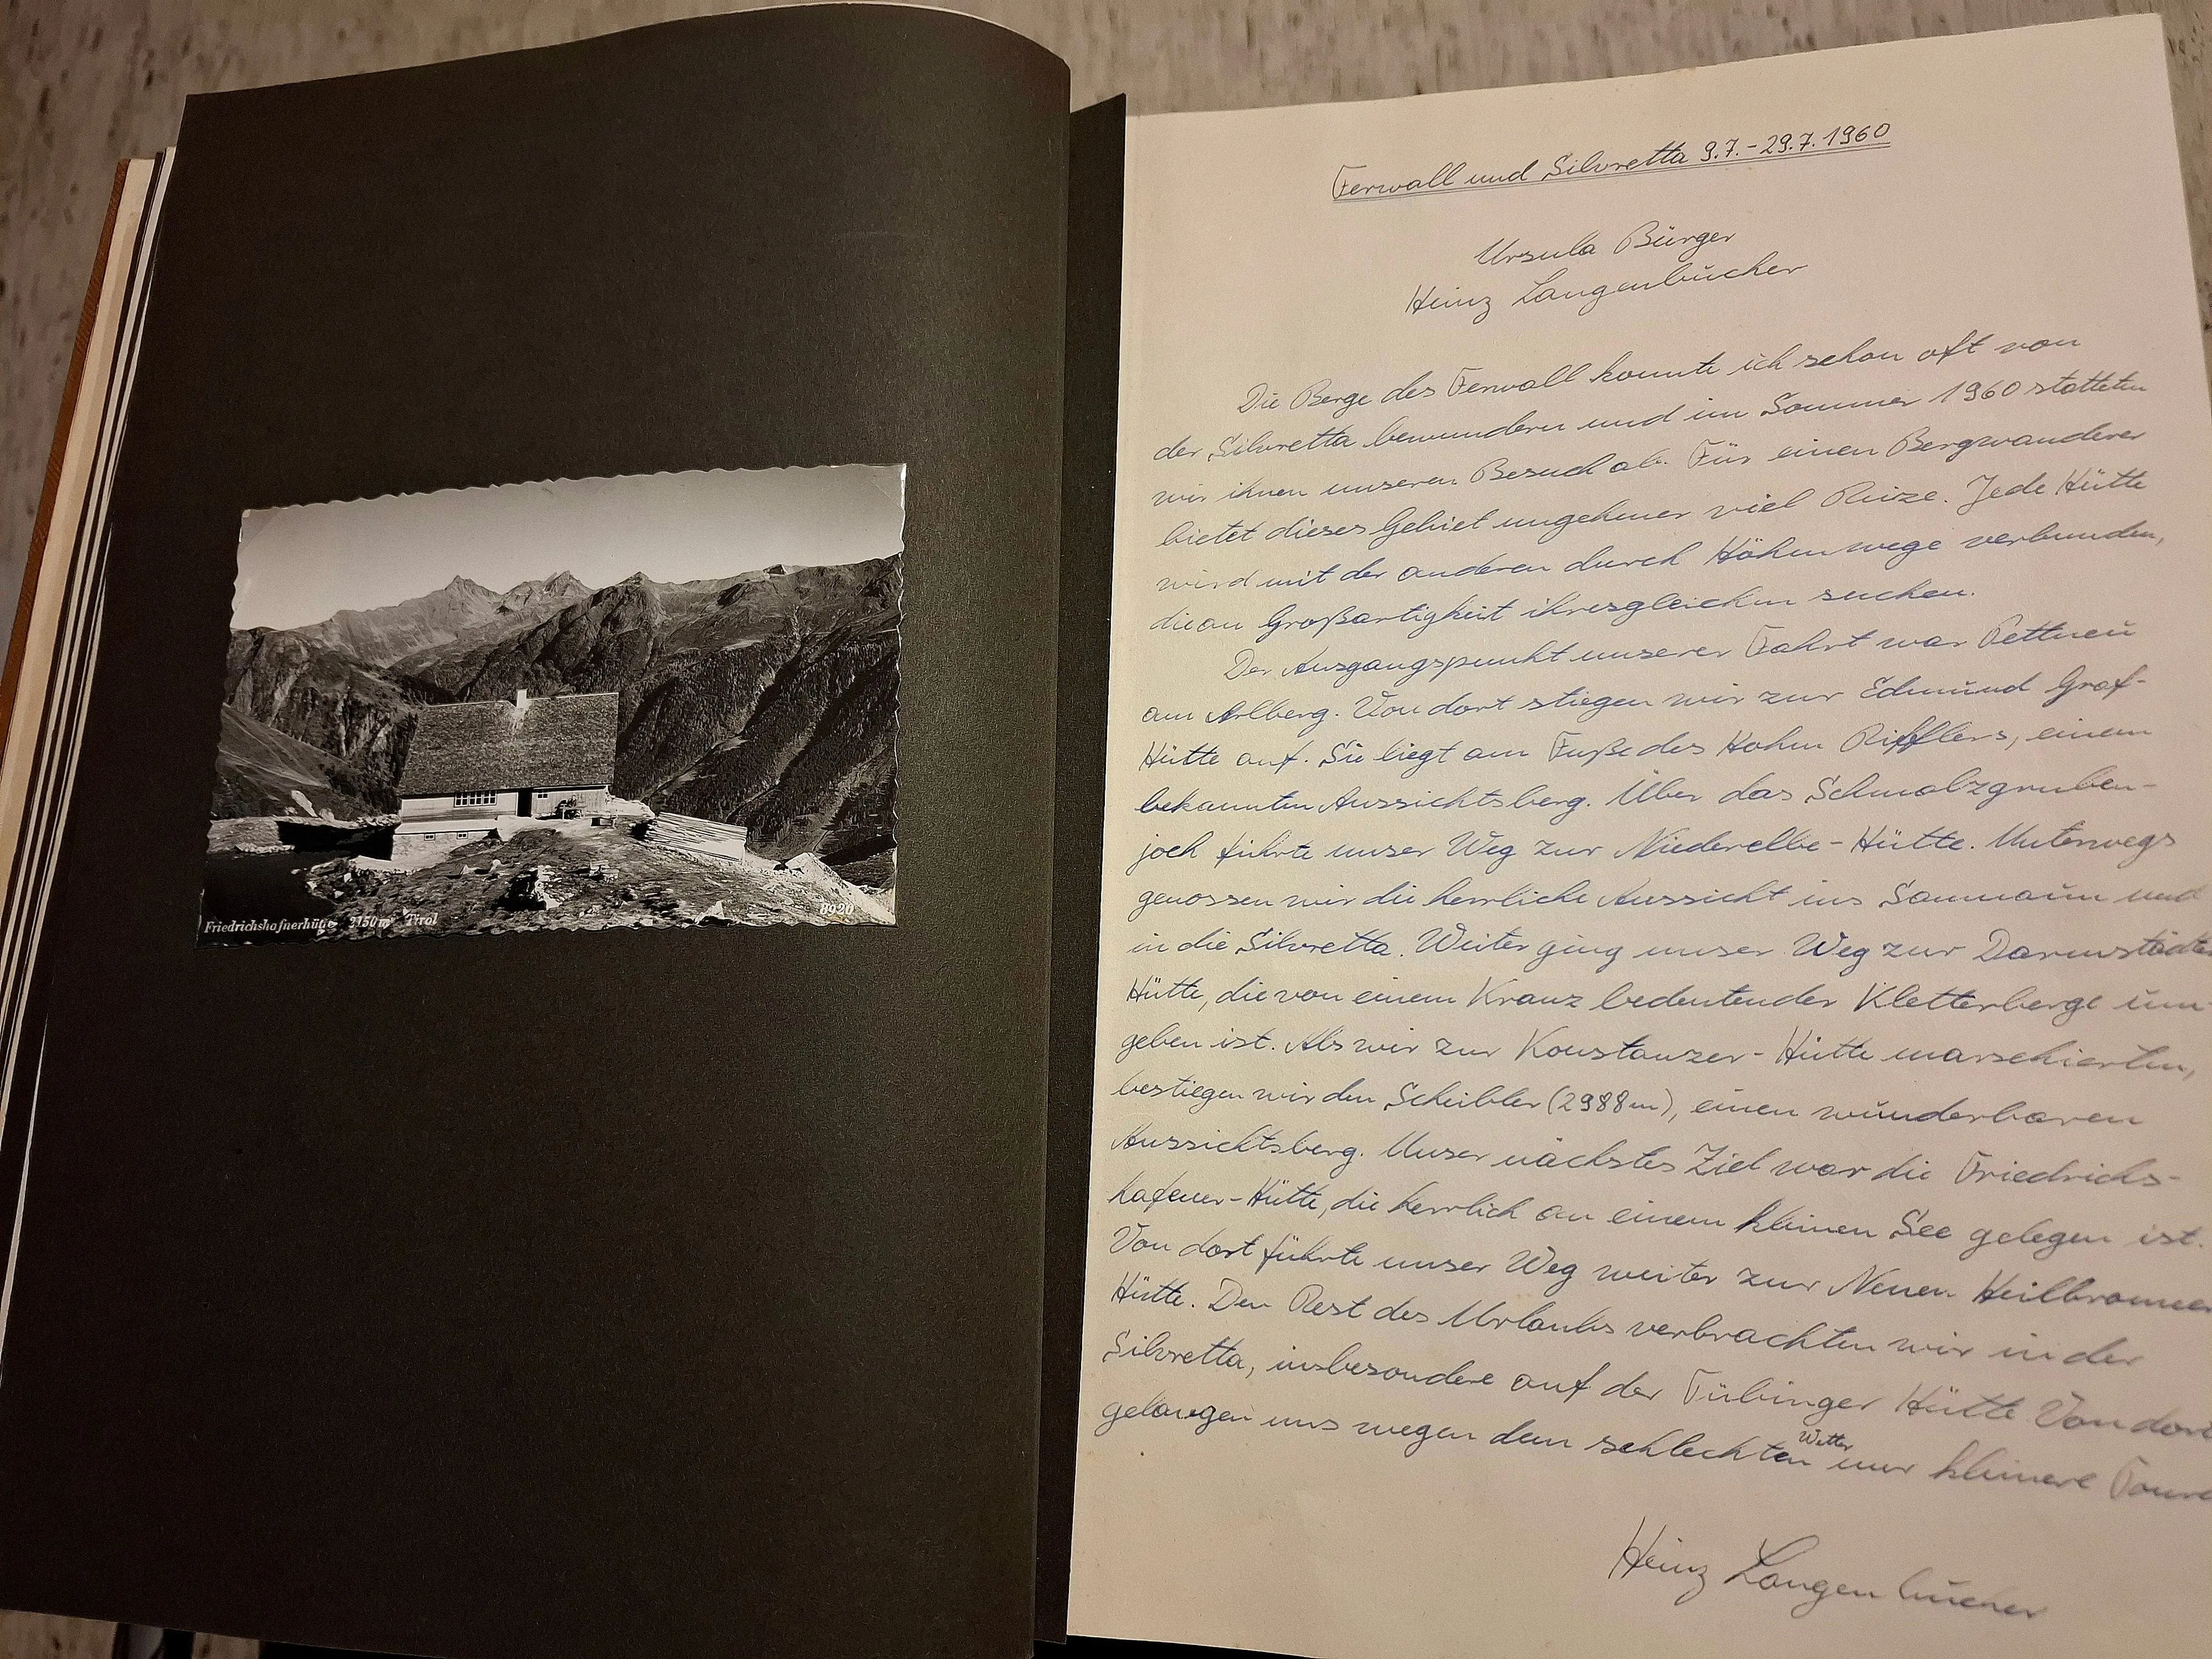 Friedrichshafnerhütte 2150 m Tirol
8920
Ferwall und Silvretta 9.7.-29.7.1960
Ursula Bürger
Heinz Langenbucher
Die Berge des Ferwall konnte ich schon oft von
der Silvretta bewundern und im Sommer 1960 statteten
wir ihnen unseren Besuch ab. Für einen Bergwanderer
bietet dieses Gebiet ungeheuer viel Reize. Jede Hütte
wird mit der anderen durch Höhenwege verbunden,
die an Großartigkeit ihresgleichen suchen.
Der Ausgangspunkt unserer Fahrt war Pettneu
am Arlberg. Von dort stiegen wir zur Edmund Graf-
Hütte auf. Sie liegt am Fuße des Hohen Rifflers, einem
bekannten Aussichtsberg. Über das Schmalzgruben-
joch führte unser Weg zur Niederelbe-Hütte. Unterwegs
genossen wir die herrliche Aussicht ins Samnaun und
in die Silvretta. Weiter ging unser Weg zur Darmstädter
Hütte, die von einem Kranz bedeutender Kletterberge um
geben ist. Als wir zur Konstanzer-Hütte marschierten,
bestiegen wir den Scheibler (2988m), einen wunderbaren
Aussichtsberg. Unser nächstes Ziel war die Friedrichs-
hafener-Hütte, die herrlich an einem kleinen See gelegen ist.
Von dort führte unser Weg weiter zur Neuen Heilbronner
Hütte. Den Rest des Urlaubs verbrachten wir in der
Silvretta, insbesondere auf der Tübinger Hütte Von dort
gelangen uns wegen dem schlechten Wetter nur kleinere
Heinz Langenbucher